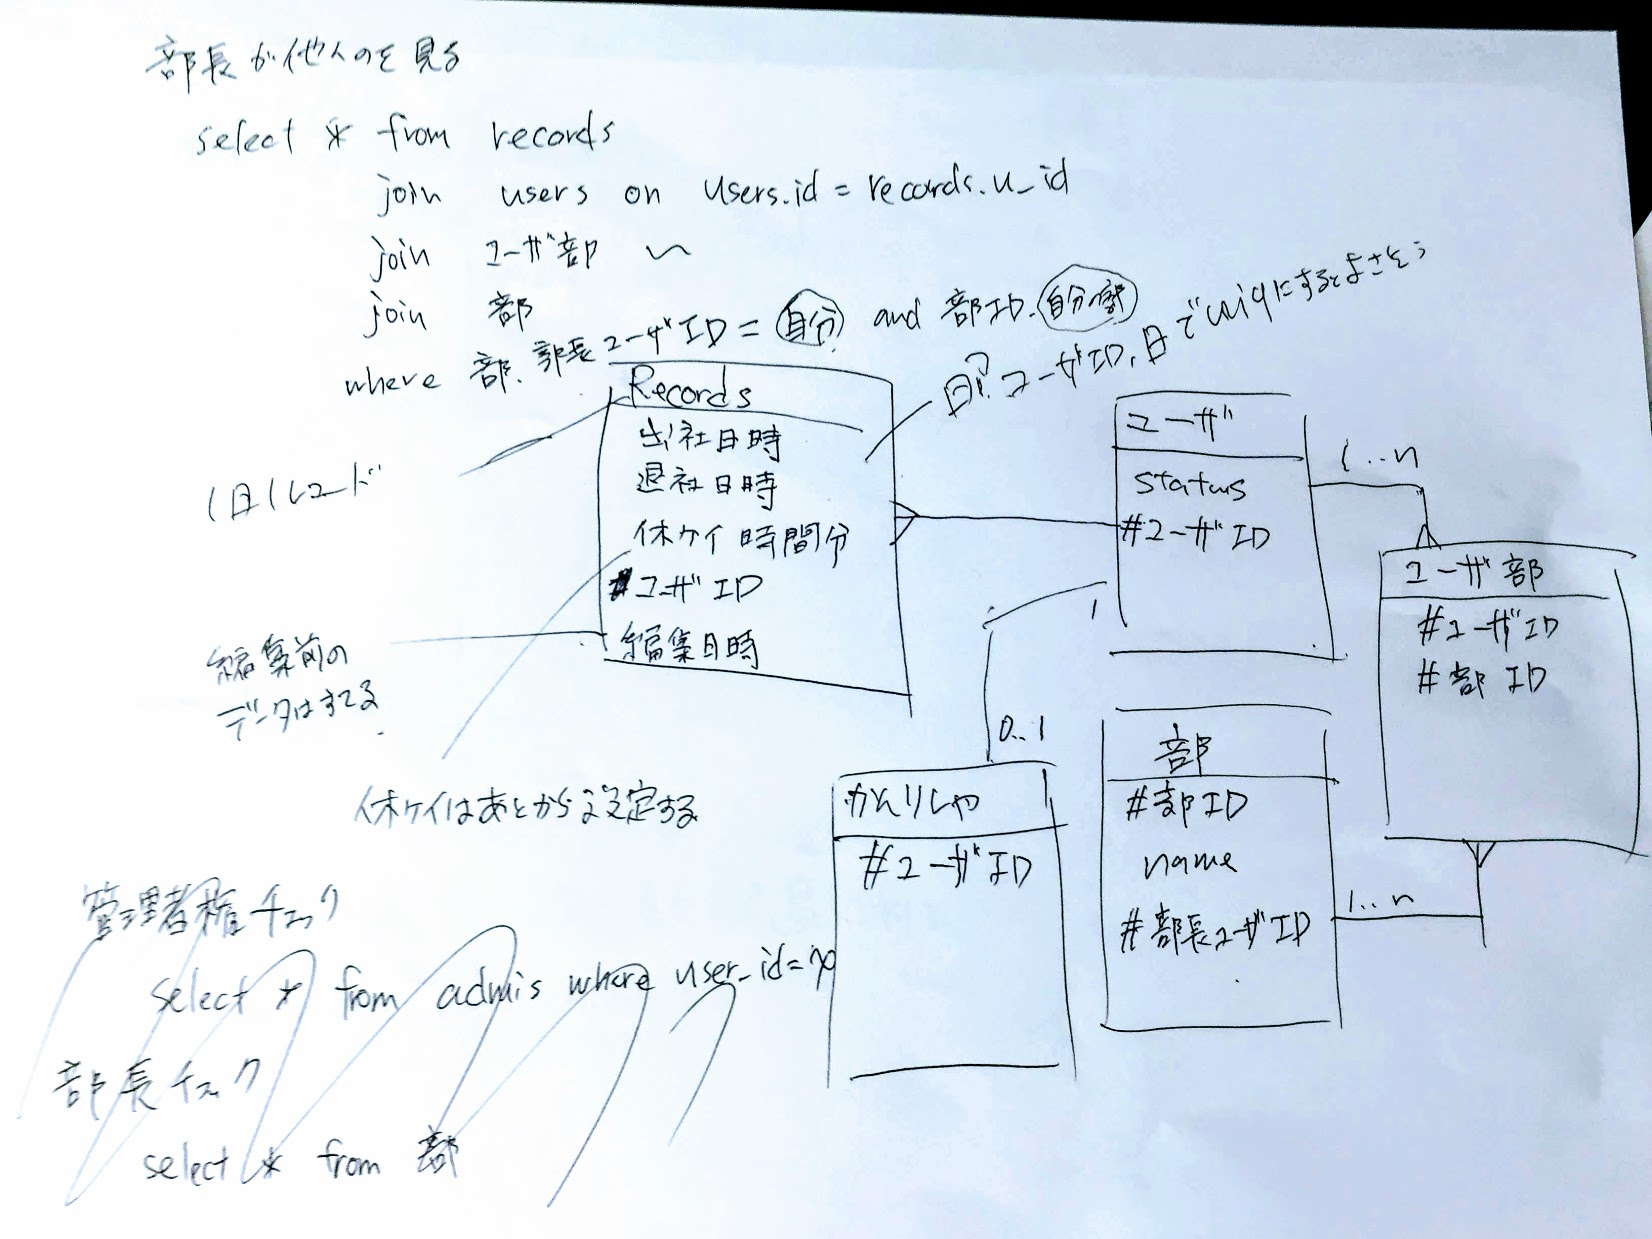 部長が他人のを見る
select * from records
join users on users.id = records.u_id
join ユーザ部 〜
join 部
where 部.部長ユーザID = 自分 and 部ID. 自分の部
日? ユーザID, 日でuniqにするとよさそう
Records
出社日時
退社日時
休ケイ時間分
#ユーザID
編集日時
1日1レコード
編集前の
データはすてる
休ケイはあとから設定する
ユーザ
status
#ユーザID
1..n
ユーザ部
#ユーザID
#部ID
1
0..1
かんりしゃ
#ユーザID
部
#部ID
name
#部長ユーザID
1..n
管理者権チェック
select * from admis where user_id=
部長チェック
select * from 部